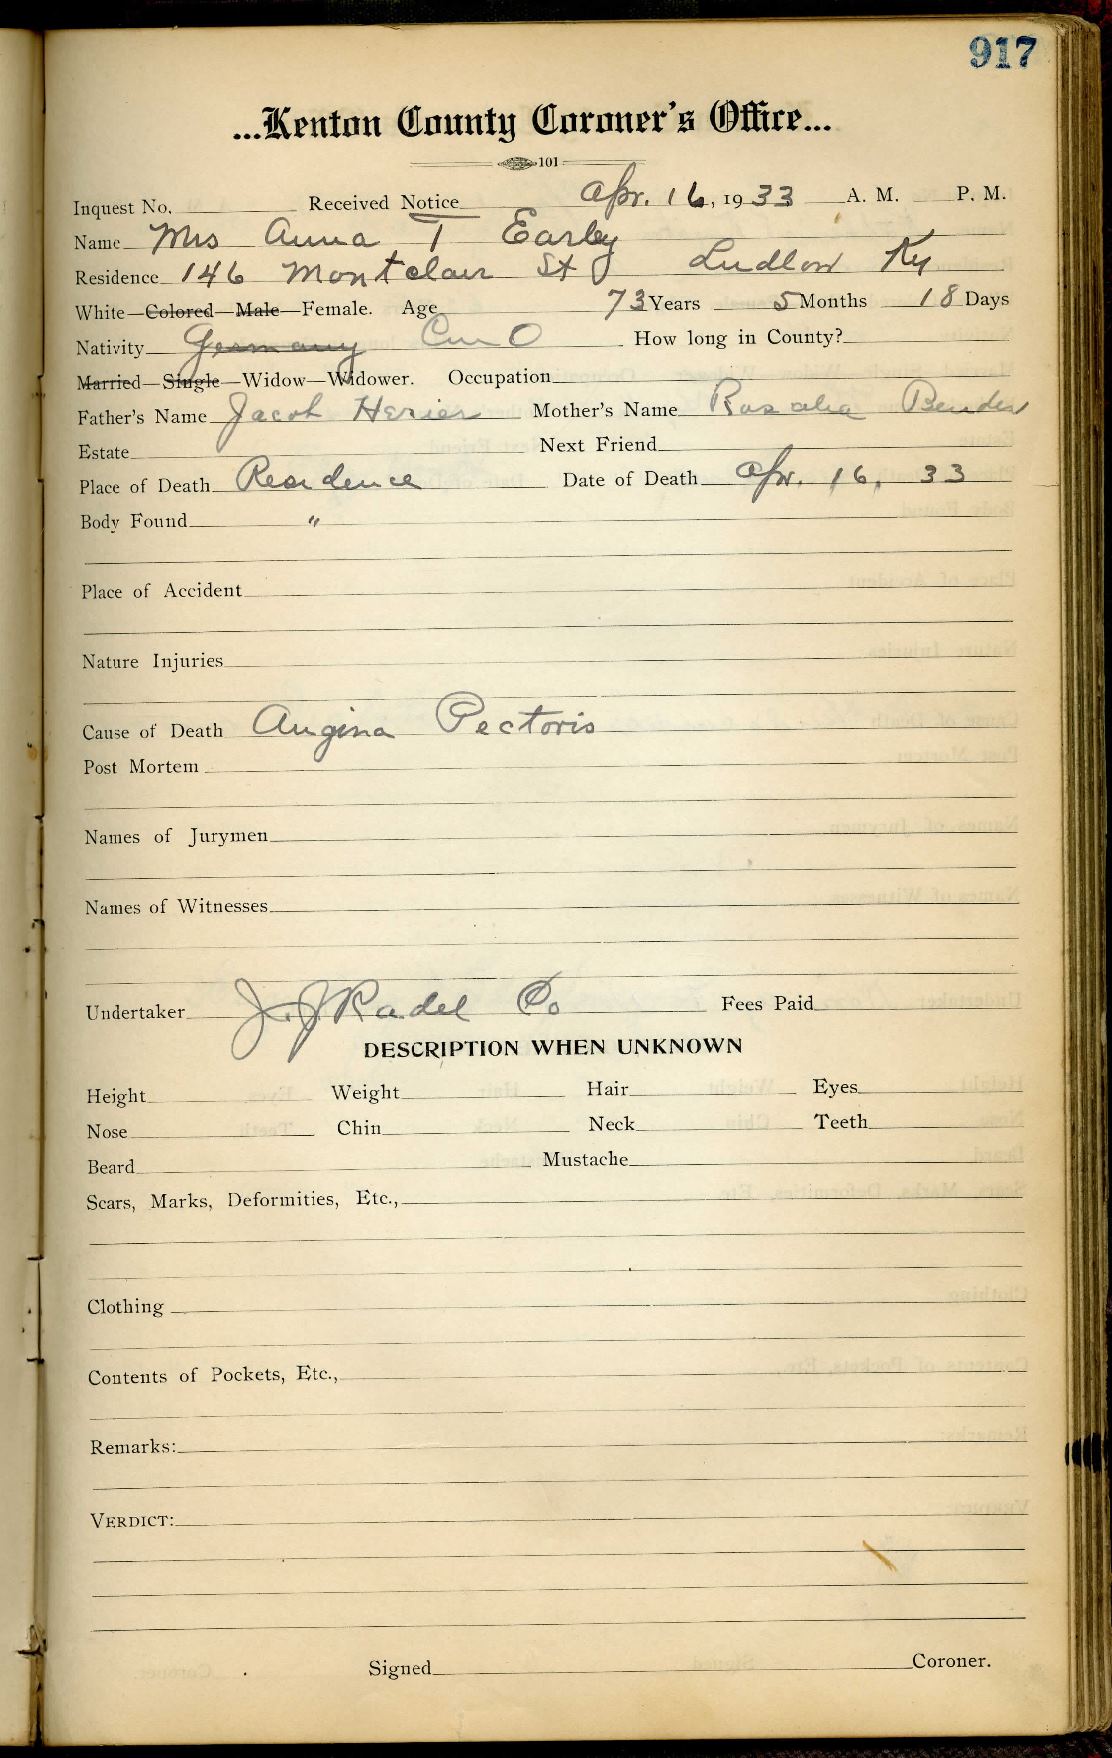 917
...Kenton County Coroner's Office...
101
Inquest No. Received Notice Apr. 16, 1933 A. M. P. M.
Name Mrs Anna T Earley
Residence 146 Montclair St Ludlow Ky
White—Colored—Male—Female. Age 73 Years 5 Months 18 Days
Nativity Germany Cin O How long in County?
Married—Single—Widow—Widower. Occupation
Father's Name Jacob Herier Mother's Name Rosalia Bender
Estate Next Friend
Place of Death Residence Date of Death Apr. 16, 33
Body Found "
Place of Accident
Nature Injuries
Cause of Death Angina Pectoris
Post Mortem
Names of Jurymen
Names of Witnesses
Undertaker J. J. Radel Co Fees Paid
DESCRIPTION WHEN UNKNOWN
Height Weight Hair Eyes
Nose Chin Neck Teeth
Beard Mustache
Scars, Marks, Deformities, Etc.,
Clothing
Contents of Pockets, Etc.,
Remarks:
VERDICT:
Signed Coroner.